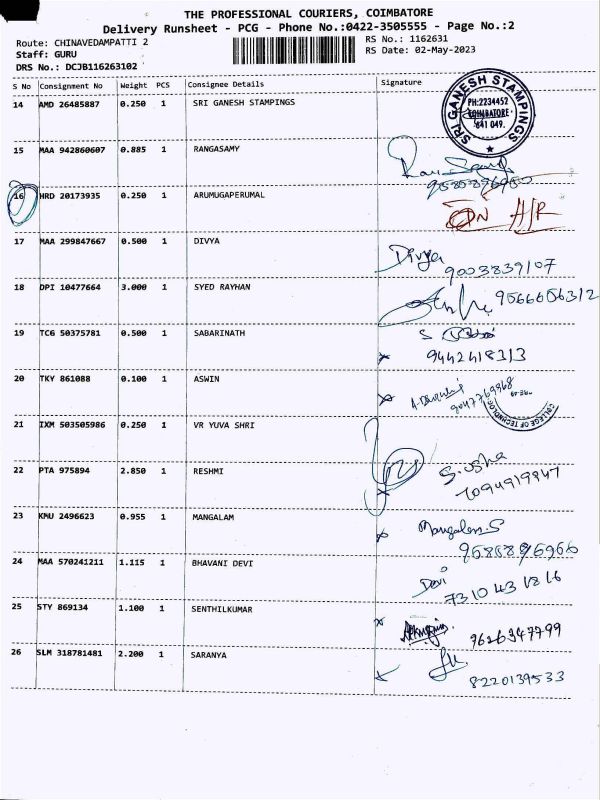 THE PROFESSIONAL COURIERS, COIMBATORE
Delivery Runsheet - PCG - Phone No.:0422-3505555 - Page No.:2
Route: CHINAVEDAMPATTI 2
Staff: GURU
DRS No.: DCJB116263102
RS No.: 1162631
RS Date: 02-May-2023
S No Consignment No Weight PCS Consignee Details Signature
14 AMD 26485887 0.250 1 SRI GANESH STAMPINGS
SRI GANESH STAMPINGS
PH:2234452
COIMBATORE
641 049.
15 MAA 942860607 0.885 1 RANGASAMY
16 HRD 20173935 0.250 1 ARUMUGAPERUMAL
17 MAA 299847667 0.500 1 DIVYA
Divya
9003839107
18 DPI 10477664 3.000 1 SYED RAYHAN
9566656312
19 TCG 50375781 0.500 1 SABARINATH
S
9442418313
20 TKY 861088 0.100 1 ASWIN
COLLEGE OF TECHNOLOGY
21 IXM 503505986 0.250 1 VR YUVA SHRI
22 PTA 975894 2.850 1 RESHMI
S.usha
7094919947
23 KMU 2496623 0.955 1 MANGALAM
Mangalam.S
24 MAA 570241211 1.115 1 BHAVANI DEVI
Devi
7310431816
25 STY 869134 1.100 1 SENTHILKUMAR
9626347799
26 SLM 318781481 2.200 1 SARANYA
8220139533